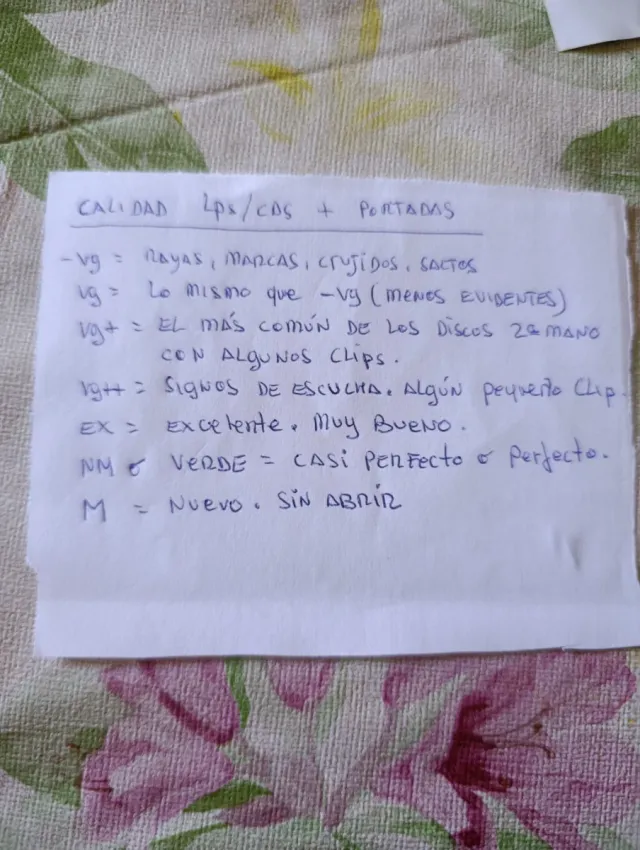 CALIDAD Lps/CDS + PORTADAS
-Vg = RAYAS, MARCAS, CRUJIDOS, SALTOS
Vg = Lo mismo que -Vg (MENOS EVIDENTES)
Vg+ = EL MÁS COMÚN DE LOS DISCOS 2ª MANO
CON ALGUNOS CLIPS.
Vg++ = SIGNOS DE ESCUCHA. ALGÚN pequeño Clip.
EX = EXCELENTE. MUY BUENO.
NM o VERDE = CASI PERFECTO o Perfecto.
M = NUEVO. SIN ABRIR